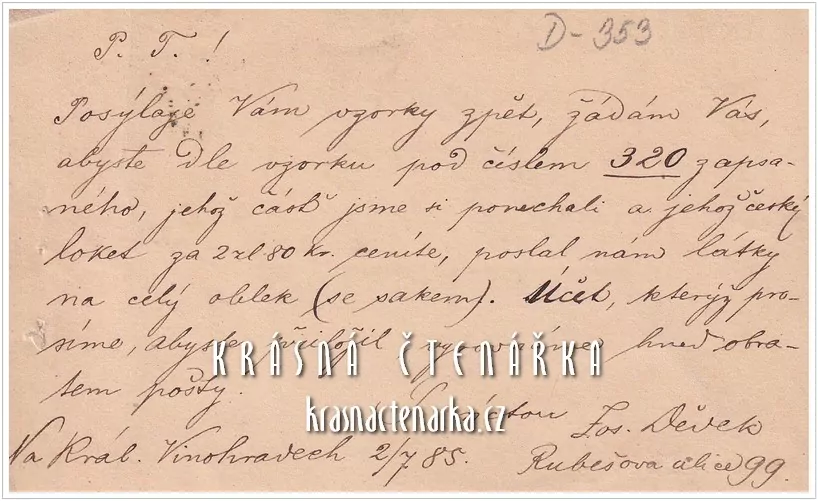 D-353
P. T. !
Posýlaje Vám vzorky zpět, žádám Vás,
abyste dle vzorku pod číslem 320 zapsa-
ného, jehož část jsme si ponechali a jehož český
loket za 2 zl 80 kr. ceníte, poslal nám látky
na celý oblek (se sakem). Účet, kterýž pro-
síme, abyste přiložil, hned obra-
tem pošty.
KRÁSNÁ ČTENÁŘKA
krasnactenarka.cz
Jos. Děděk
Na Král. Vinohradech 2/7 85.
Rubešova ulice 99.